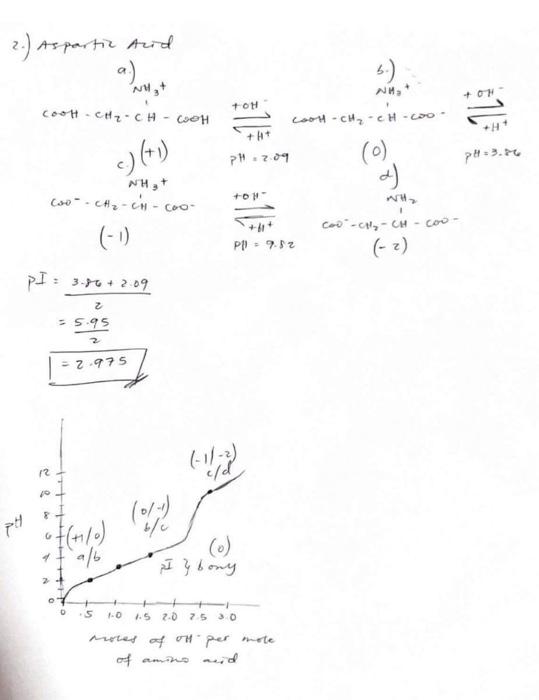 2.) Aspartic Acid
a.)
NH3+
COOH - CH2 - CH - COOH
(+1)
+OH-
+H+
pH = 2.09
b.)
NH3+
COOH - CH2 - CH - COO-
(0)
+OH-
+H+
pH = 3.86
c.)
NH3+
COO- - CH2 - CH - COO-
(-1)
+OH-
+H+
pH = 9.82
d)
NH2
COO- - CH2 - CH - COO-
(-2)
pI = 3.86 + 2.09
2
= 5.95
2
= 2.975
pH
12
10
8
6
4
2
0
(+1/0)
a/b
(0/-1)
b/c
(-1/-2)
c/d
(0)
pI } b only
0 .5 1.0 1.5 2.0 2.5 3.0
moles of OH- per mole
of amino acid